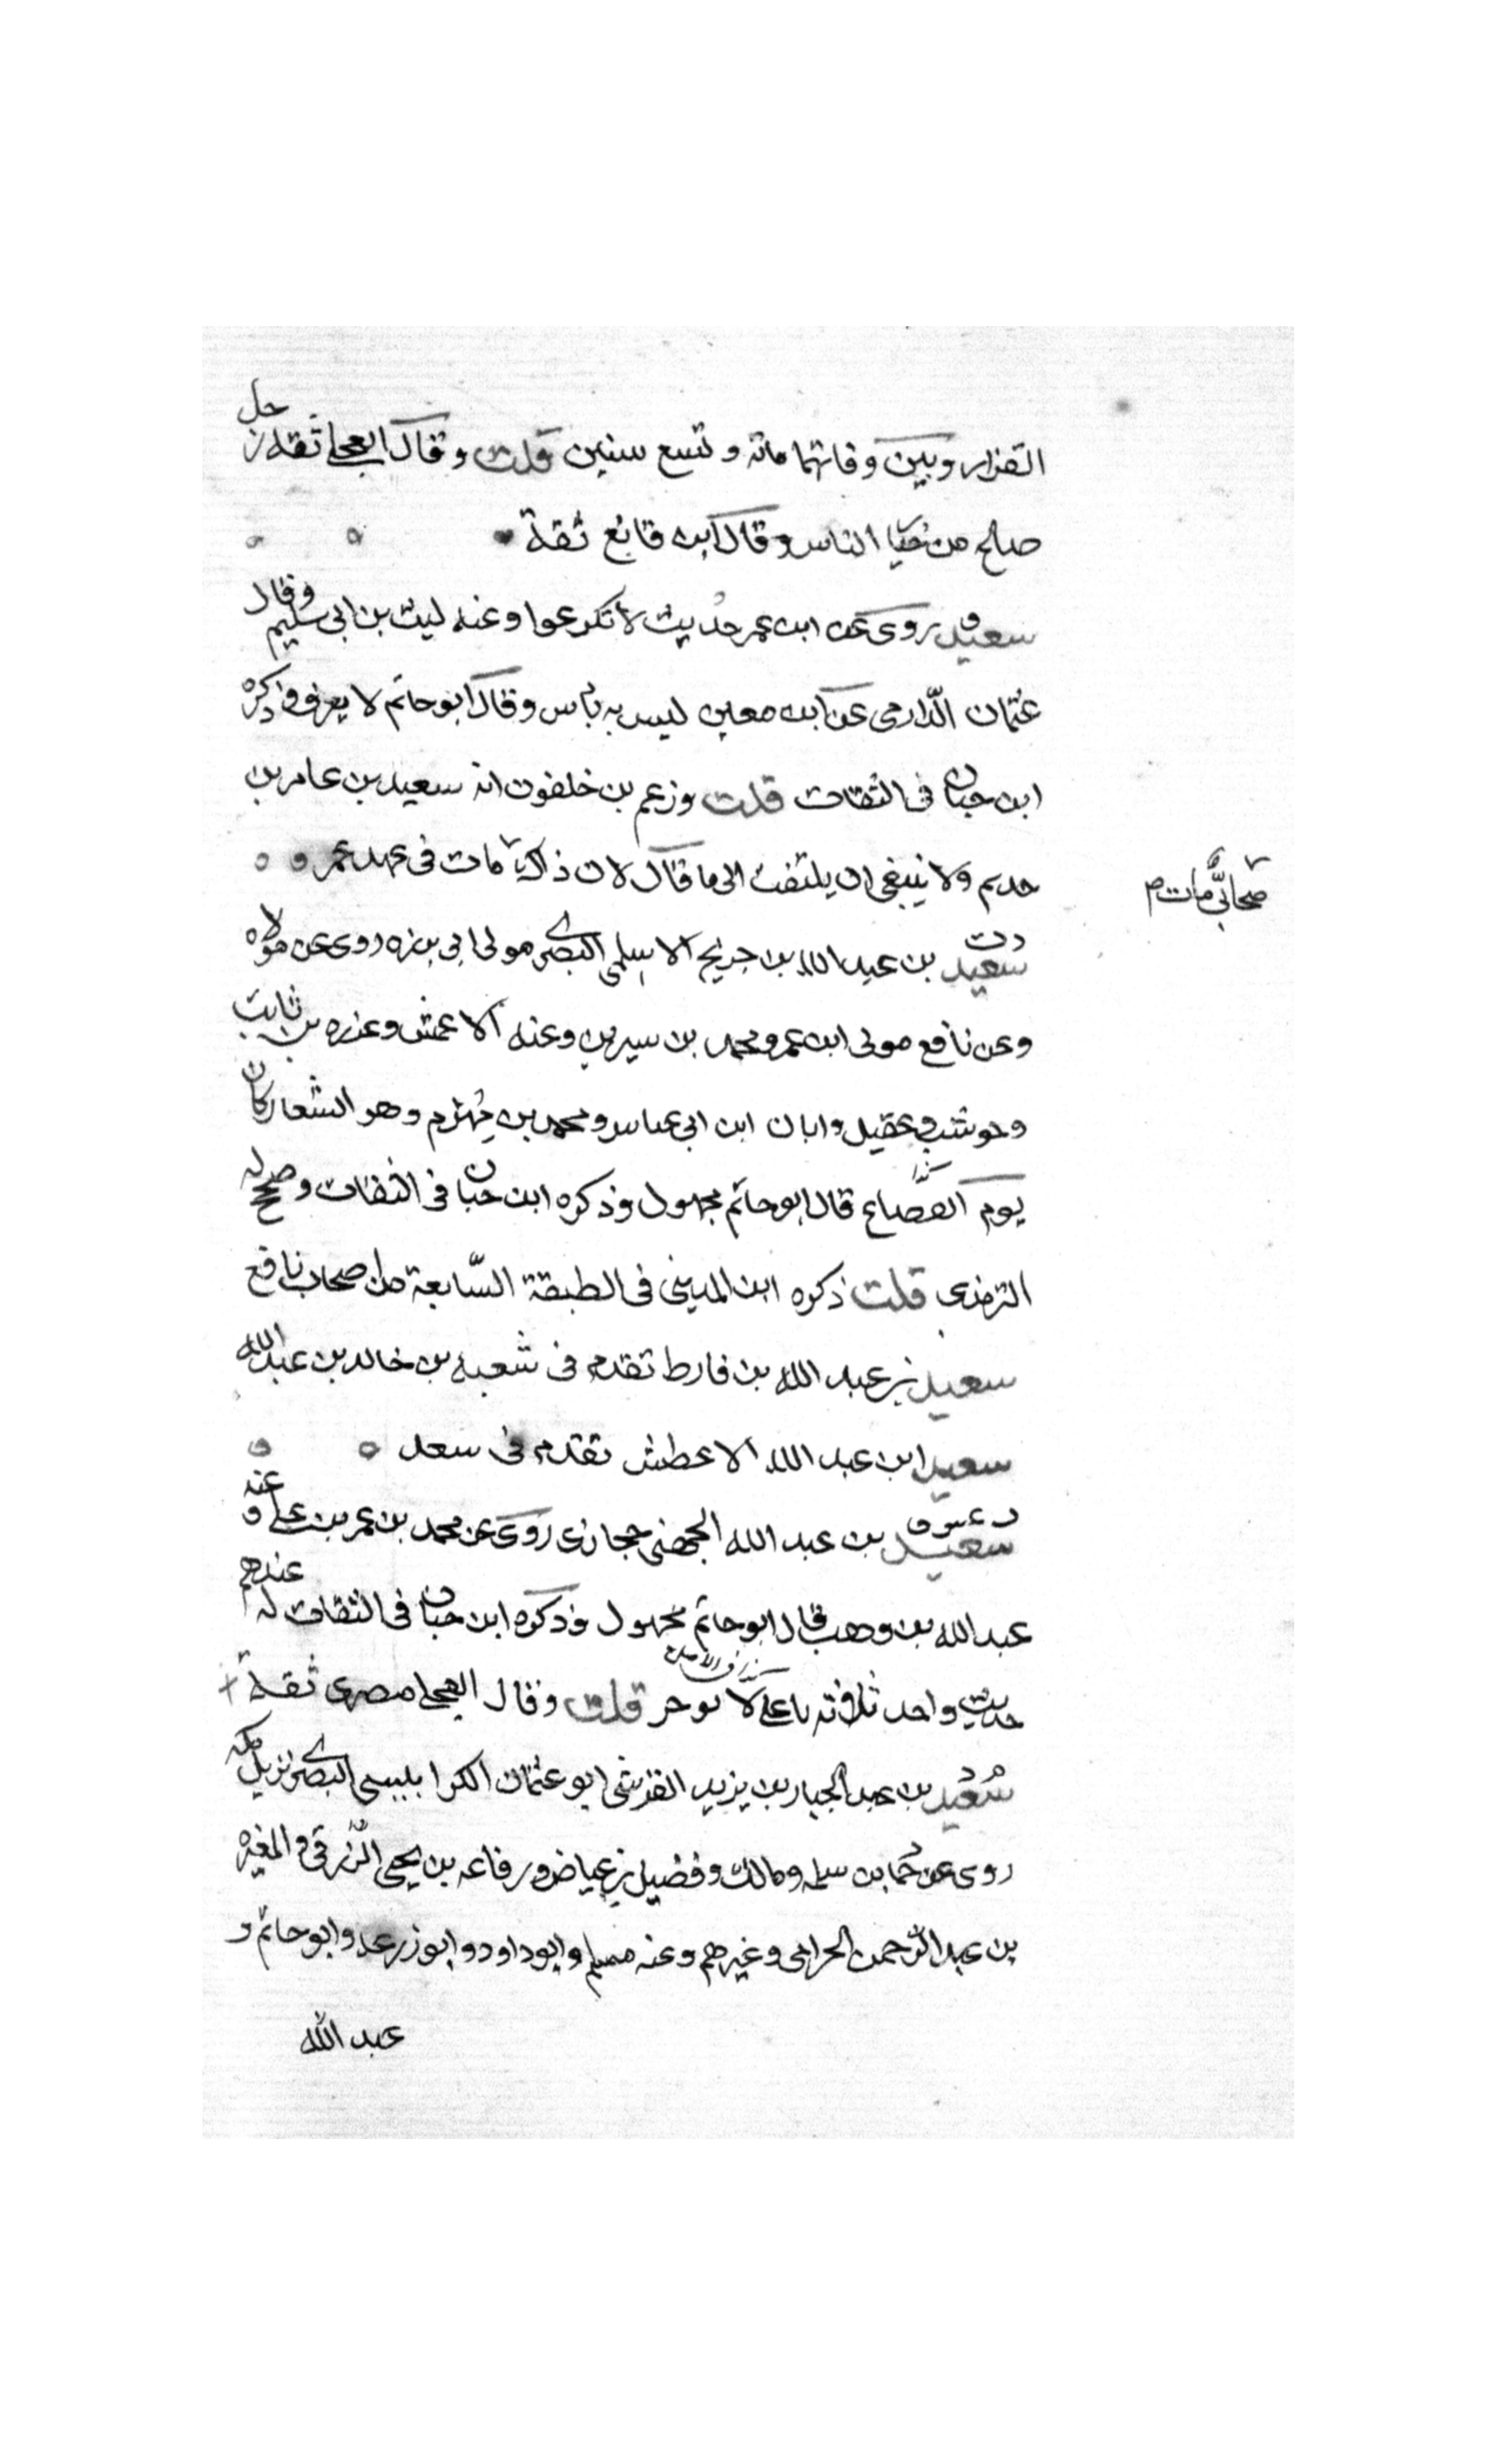 القزاز وبين وفاتهما مائة وتسع سنين قلت وقال العجلي ثقة رجل
صالح من خيا الناس وقال ابن قانع ثقة
سعيد روى عن ابن عمر حديث لا تكرعوا وعنه ليث بن ابي سليم وقال
عثمان الدّارمي عن ابن معين ليس به باس وقال ابو حاتم لا يعرف وذكره
ابن حبان في الثقات قلت وزعم بن خلفون انه سعيد بن عامر بن
حديم ولا ينبغي ان يلتفت الى ما قال لان ذاك مات في عهد عمر
صحابيّ مات
د ت
سعيد بن عبد الله بن جريج الاسلمي البصري مولى ابي برزه روى عن مولاه
وعن نافع مولى ابن عمر ومحمد بن سيرين وعنه الاعمش وعزره بن ثابت
وحوشب بن عقيل وابان ابن ابي عياس ومحمد بن مهزم وهو الشعار كان
يوم القصاع قال ابو حاتم مجهول وذكره ابن حبان في الثقات وصحح له
الترمذي قلت ذكره ابن المديني في الطبقة السّابعة من اصحاب نافع
سعيد بن عبد الله بن قارط تقدم في شعبه بن خالد بن عبد الله
سعيد ابن عبد الله الاعطش تقدم في سعد
سعيد بن عبد الله الجهني حجازي روى عن محمد بن عمر بن علي وعنه
عبد الله بن وهب قال ابو حاتم مجهول وذكره ابن حبان في الثقات له عندهم
حديث واحد ثلاثه يا علي لا توخر قلت وقال العجلي مصري ثقة
سعيد بن عبد الجبار بن يزيد القرشي ابو عثمان الكرابلبسي البصري نزيل مكه
روى عن حما بن سلمه ومالك وفضيل بن عياض ورفاعه بن يحيى الزرقي والمغيره
بن عبد الرحمن الحرامي وغيرهم وعنه مسلم وابو داود وابو زرعه وابو حاتم و
عبد الله